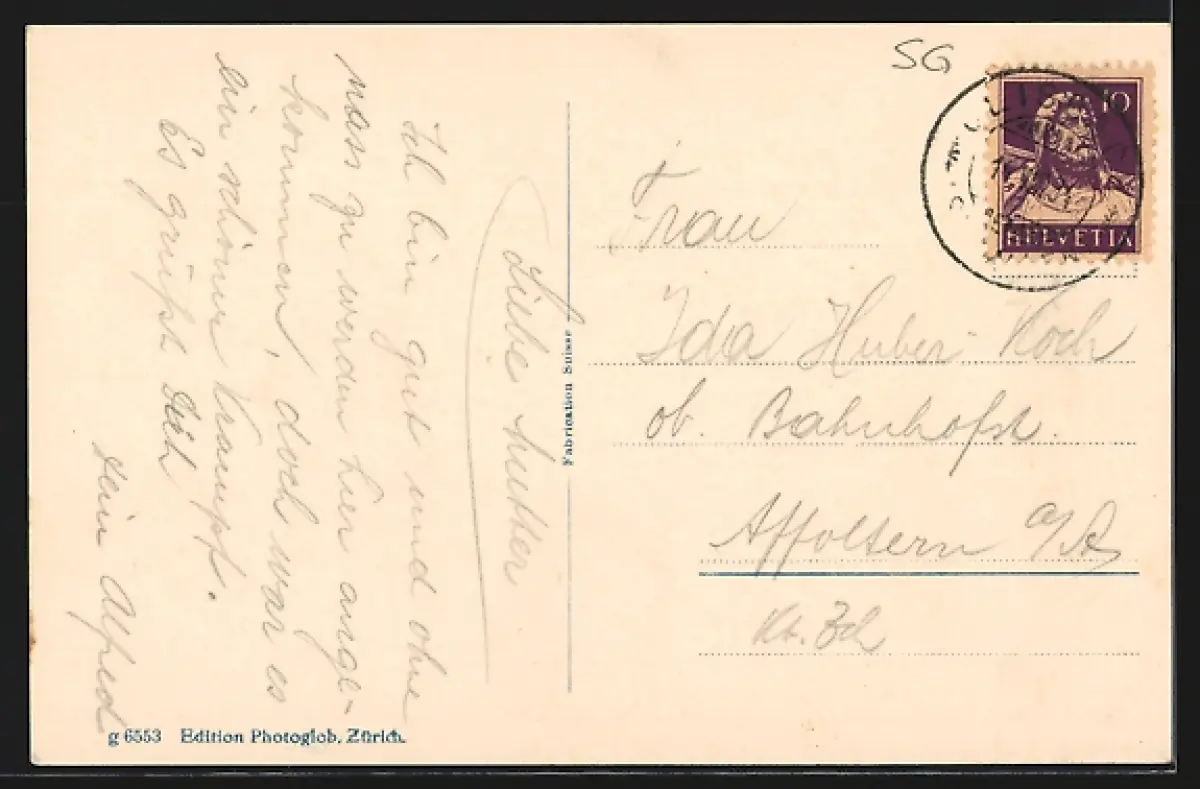 Liebe Mutter
Ich bin gut und ohne
nass zu werden hier ange-
kommen, doch war es
ein schöner Krampf.
Es grüsst Dich
Dein Alfred
Fabrication Suisse
g 6553 Edition Photoglob, Zürich.
SG
10
HELVETIA
Frau
Ida Huber-Koch
ob. Bahnhofst.
Affoltern a/A
Kt. Zch